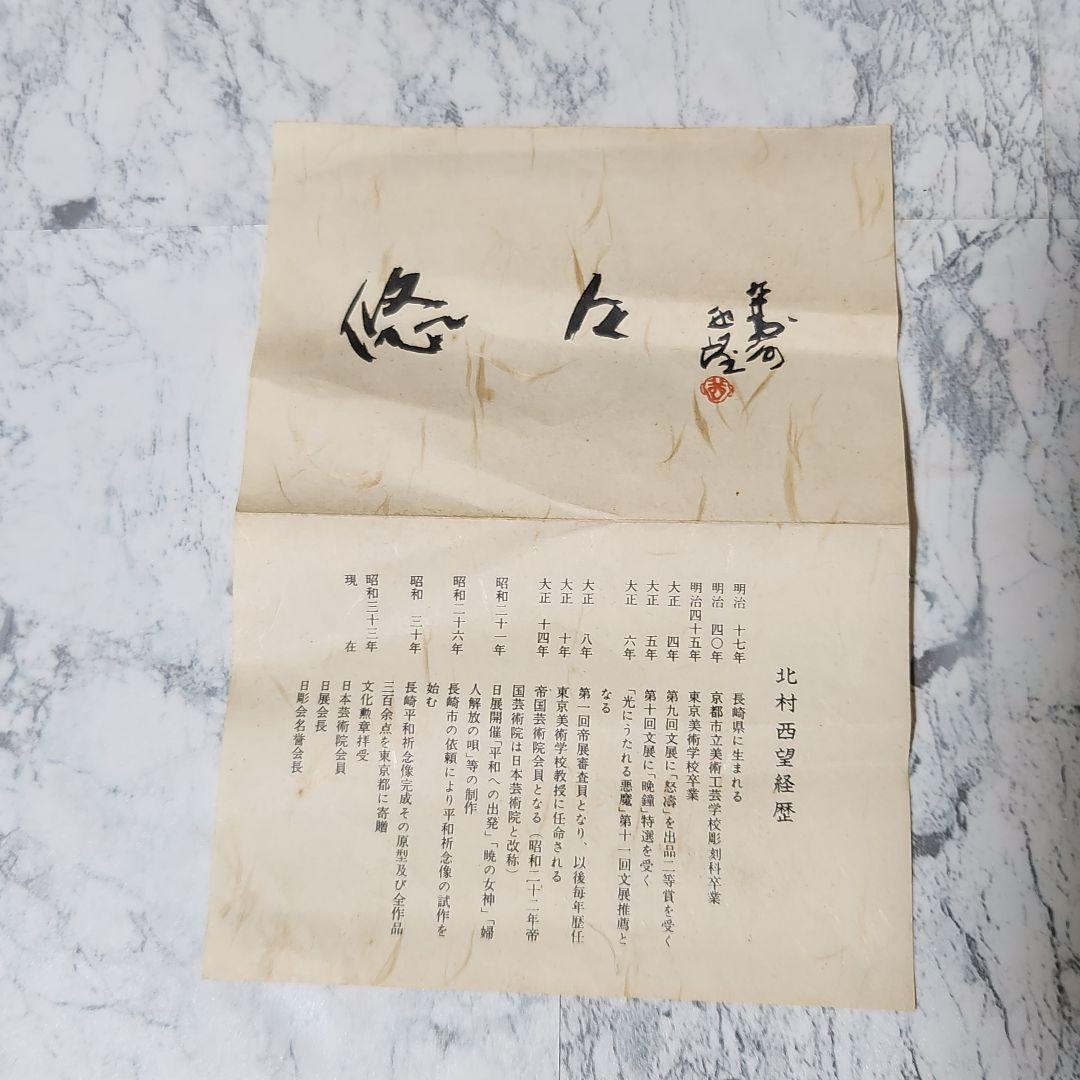 悠々
西望
北村西望経歴
明治 十七年 長崎県に生まれる
明治 四〇年 京都市立美術工芸学校彫刻科卒業
明治四十五年 東京美術学校卒業
大正 四年 第九回文展に「怒濤」を出品二等賞を受く
大正 五年 第十回文展に「晩鐘」特選を受く
大正 六年 「光にうたれる悪魔」第十一回文展推薦と
なる
大正 八年 第一回帝展審査員となり、以後毎年歴任
大正 十年 東京美術学校教授に任命される
大正 十四年 帝国芸術院会員となる（昭和二十二年帝
国芸術院は日本芸術院と改称）
昭和二十一年 日展開催「平和への出発」「暁の女神」「婦
人解放の唄」等の制作
昭和二十六年 長崎市の依頼により平和祈念像の試作を
始む
昭和 三十年 長崎平和祈念像完成その原型及び全作品
三百余点を東京都に寄贈
昭和三十三年 文化勲章拝受
現 在 日本芸術院会員
日展会長
日彫会名誉会長